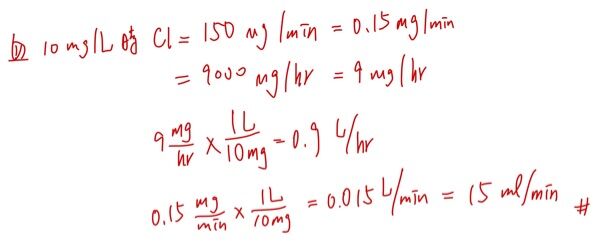 (b) 10 mg/L 時 Cl = 150 ug/min = 0.15 mg/min
= 9000 mg/hr = 9 mg/hr
9 mg/hr × 1L/10mg = 0.9 L/hr
0.15 mg/min × 1L/10mg = 0.015 L/min = 15 ml/min #